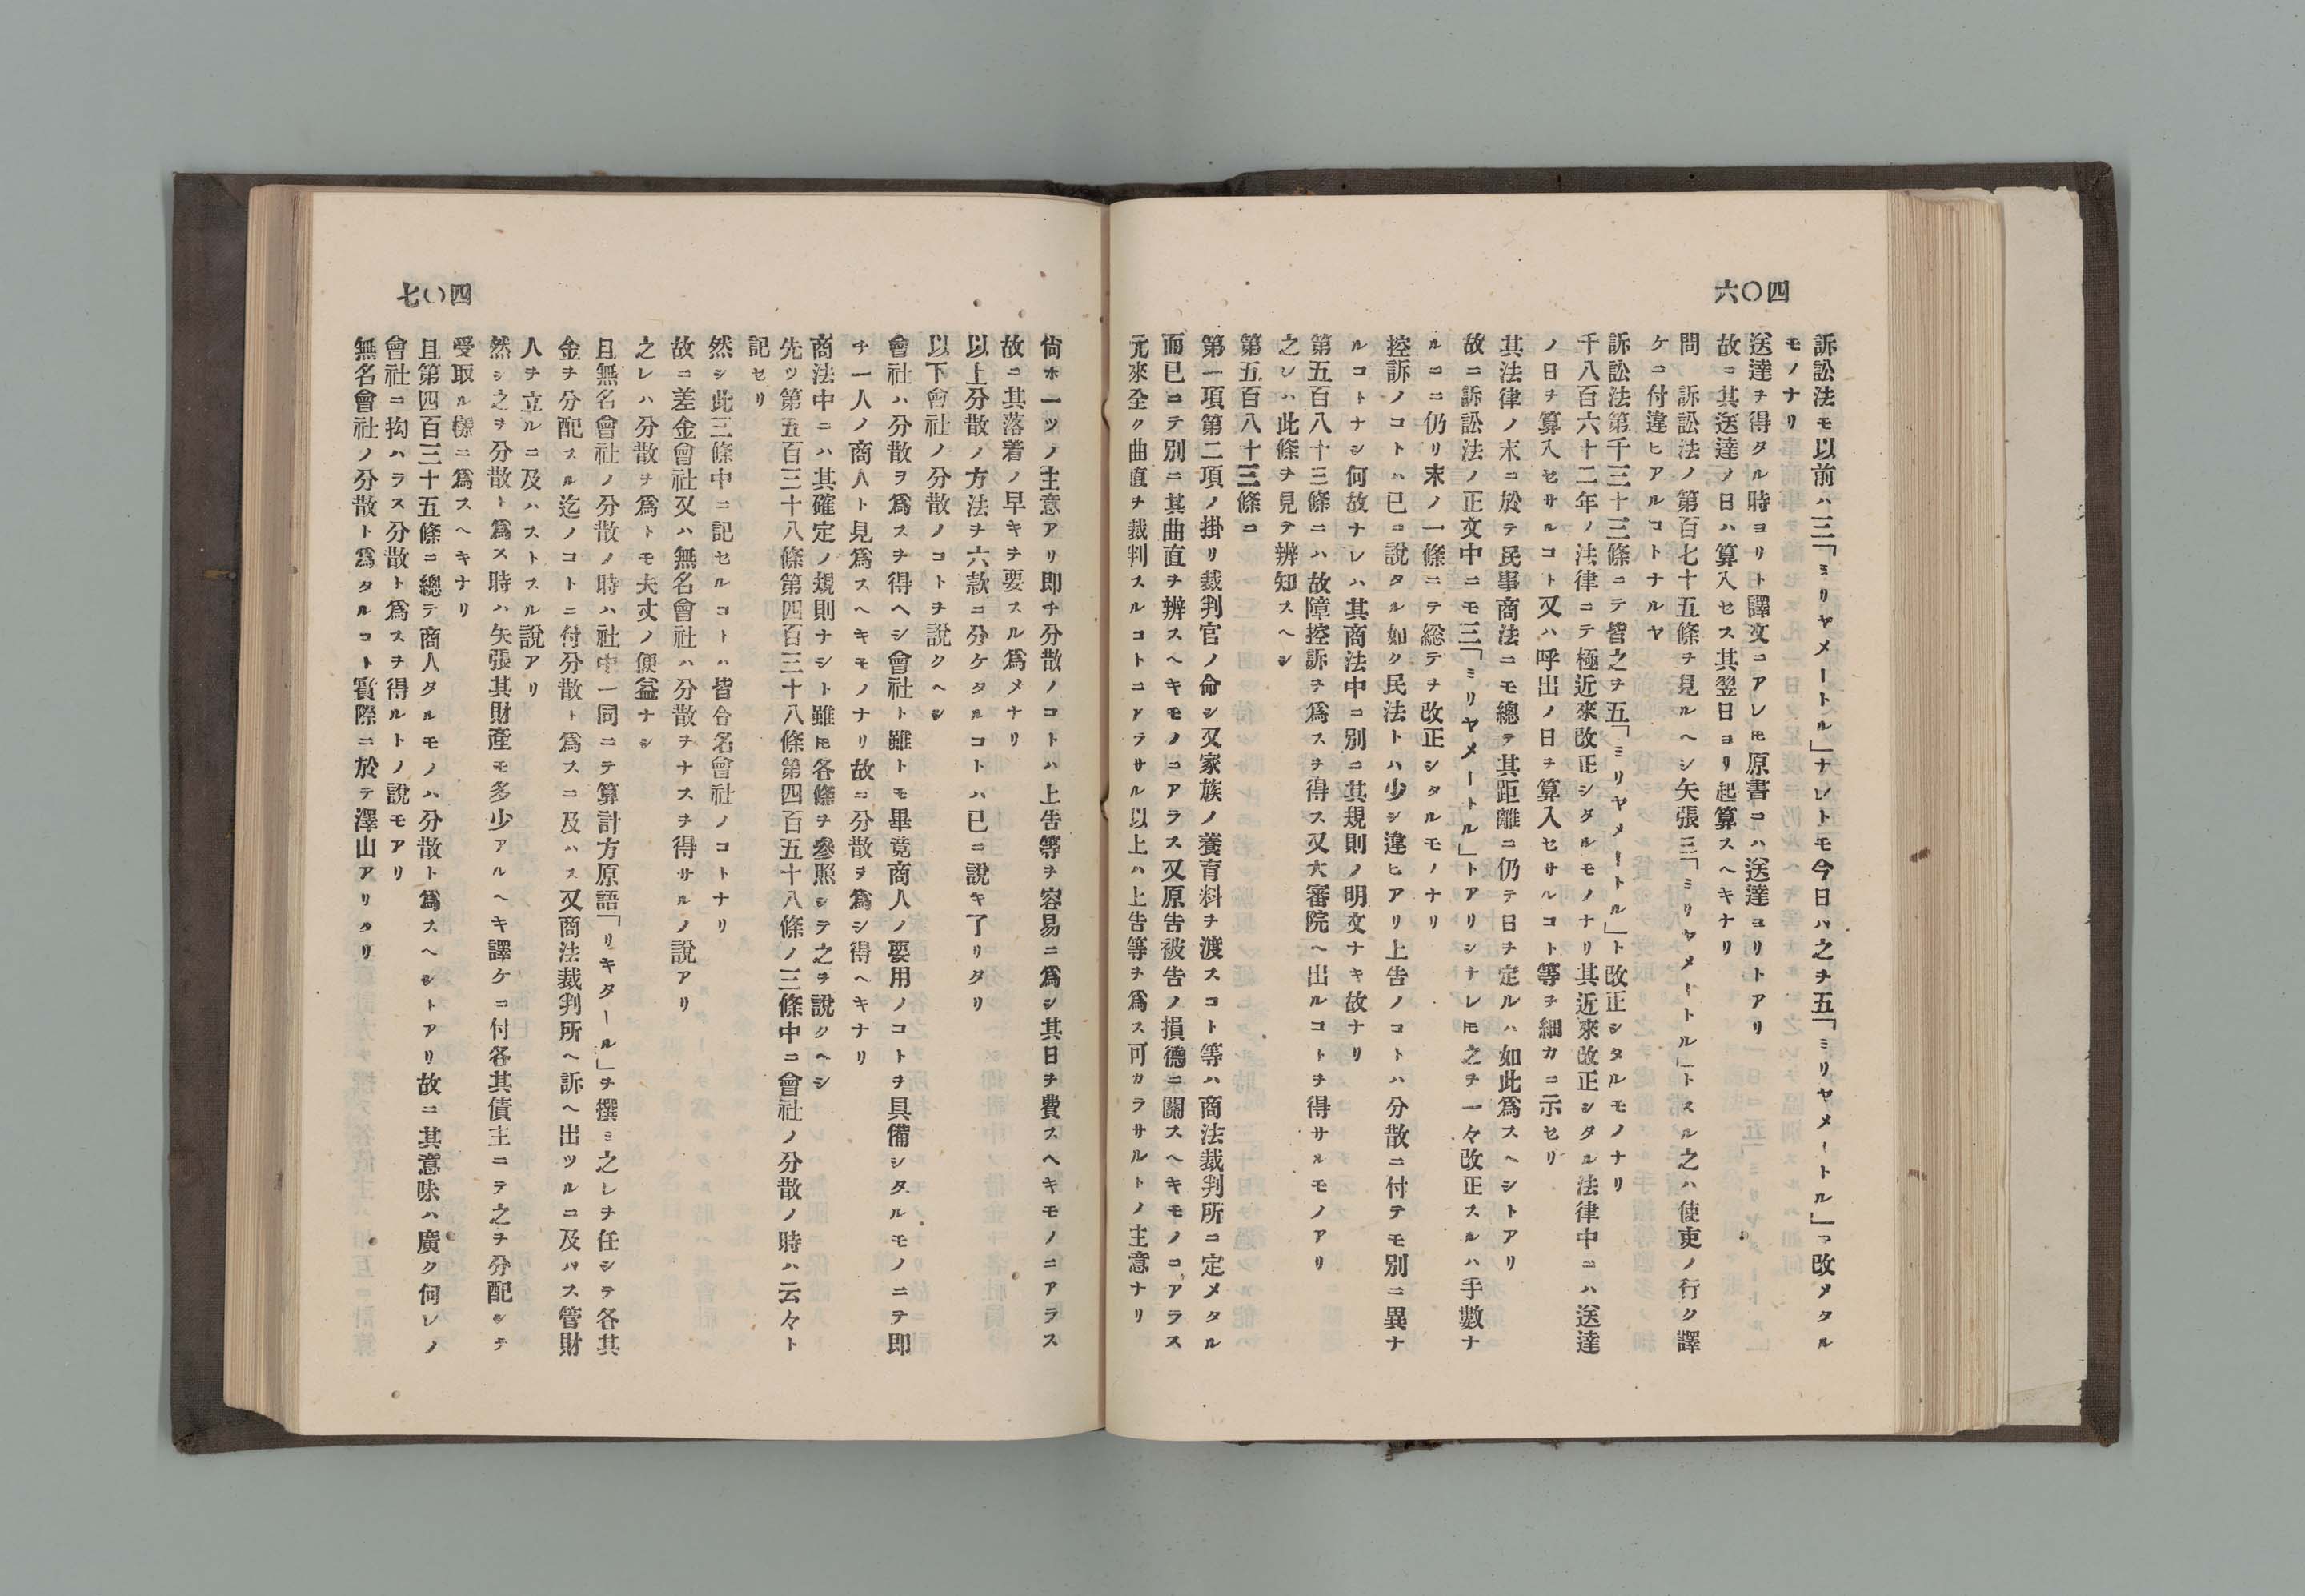 四〇六
訴訟法モ以前ハ三「ミリヤメートル」ナレトモ今日ハ之ヲ五「ミリヤメートル」ニ改メタル
モノナリ
送達ヲ得タル時ヨリト譯文ニアレ𪜈原書ニハ送達ヨリトアリ
故ニ其送達ノ日ハ算入セス其翌日ヨリ起算スヘキナリ
問 訴訟法ノ第百七十五條ヲ見ルヘシ矢張三「ミリヤメートル」トスル之ハ使吏ノ行ク譯
ケニ付違ヒアルコトナルヤ
訴訟法第千三十三條ニテ皆之ヲ五「ミリヤメートル」ト改正シタルモノナリ
千八百六十二年ノ法律ニテ極近來改正シタルモノナリ其近來改正シタル法律中ニハ送達
ノ日ヲ算入セサルコト又ハ呼出ノ日ヲ算入セサルコト等ヲ細カニ示セリ
其法律ノ末ニ於テ民事商法ニモ總テ其距離ニ仍テ日ヲ定ルハ如此爲スヘシトアリ
故ニ訴訟法ノ正文中ニモ三「ミリヤメートル」トアリシナレ𪜈之ヲ一々改正スルハ手數ナ
ルニ仍リ末ノ一條ニテ総テヲ改正シタルモノナリ
控訴ノコトハ已ニ說タル如ク民法トハ少シ違ヒアリ上告ノコトハ分散ニ付テモ別ニ異ナ
ルコトナシ何故ナレハ其商法中ニ別ニ其規則ノ明文ナキ故ナリ
第五百八十三條ニハ故障控訴ヲ爲スヲ得ス又大審院ヘ出ルコトヲ得サルモノアリ
之レハ此條ヲ見テ辨知スヘシ
第五百八十三條ニ
第一項第二項ノ掛リ裁判官ノ命シ又家族ノ養育料ヲ渡スコト等ハ商法裁判所ニ定メタル
而已ニテ別ニ其曲直ヲ辨スヘキモノニアラス又原告被告ノ損德ニ關スヘキモノニアラス
元來全ク曲直ヲ裁判スルコトニアラサル以上ハ上告等ヲ爲ス可カラサルトノ主意ナリ
四〇七
尙ホ一ツノ主意アリ即チ分散ノコトハ上告等ヲ容易ニ爲シ其日ヲ費スヘキモノニアラス
故ニ其落着ノ早キヲ要スル爲メナリ
以上分散ノ方法ヲ六款ニ分ケタルコトハ已ニ說キ了リタリ
以下會社ノ分散ノコトヲ說クヘシ
會社ハ分散ヲ爲スヲ得ヘシ會社ト雖トモ畢竟商人ノ要用ノコトヲ具備シタルモノニテ即
チ一人ノ商人ト見爲スヘキモノナリ故ニ分散ヲ爲シ得ヘキナリ
商法中ニハ其確定ノ規則ナシト雖𪜈各條ヲ參照シテ之ヲ說クヘシ
先ツ第五百三十八條第四百三十八條第四百五十八條ノ三條中ニ會社ノ分散ノ時ハ云々ト
記セリ
然シ此三條中ニ記セルコトハ皆合名會社ノコトナリ
故ニ差金會社又ハ無名會社ハ分散ヲナスヲ得サルノ說アリ
之レハ分散ヲ爲トモ夫丈ノ便益ナシ
且無名會社ノ分散ノ時ハ社中一同ニテ算計方原語「リキタール」ヲ撰ミ之レヲ任シテ各其
金ヲ分配スル迄ノコトニ付分散ト爲スニ及ハス又商法裁判所ヘ訴ヘ出ツルニ及ハス管財
人ヲ立ルニ及ハストスル說アリ
然シ之ヲ分散ト爲ス時ハ矢張其財產モ多少アルヘキ譯ケニ付各其債主ニテ之ヲ分配シテ
受取ル樣ニ爲スヘキナリ
且第四百三十五條ニ總テ商人タルモノハ分散ト爲スヘシトアリ故ニ其意味ハ廣ク何レノ
會社ニ拘ハラス分散ト爲スヲ得ルトノ說モアリ
無名會社ノ分散ト爲タルコト實際ニ於テ澤山アリタリ